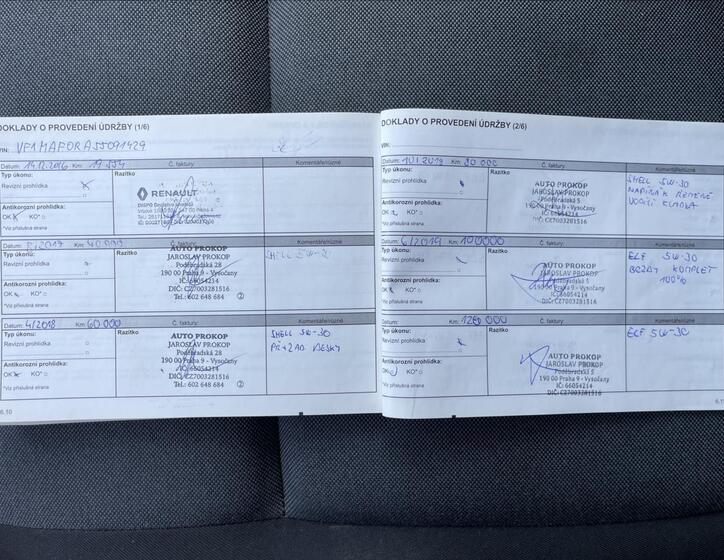 DOKLADY O PROVEDENÍ ÚDRŽBY (1/6)
VIN: VF1MAFORA55091429
Datum: 14.12.2016 Km:
Č. faktury
Komentáře/různé
Typ úkonu:
Razítko
Revizní prohlídka
RENAULT
Antikorozní prohlídka:
OK KO*
*Viz příslušná strana
Datum: 2017 Km: 40 000
Č. faktury
Komentáře/různé
Typ úkonu:
Razítko
AUTO PROKOP
JAROSLAV PROKOP
Poděbradská 28
190 00 Praha 9 - Vysočany
IČ: 66054214
DIČ: CZ7003281516
Tel.: 602 648 684
SHELL 5W-
Revizní prohlídka
Antikorozní prohlídka:
OK KO*
*Viz příslušná strana
Datum: 4/2018 Km: 60 000
Č. faktury
Komentáře/různé
Typ úkonu:
Razítko
AUTO PROKOP
JAROSLAV PROKOP
Poděbradská 28
190 00 Praha 9 - Vysočany
IČ: 66054214
DIČ: CZ7003281516
Tel.: 602 648 684
SHELL 5W-30
DESKY
Revizní prohlídka
Antikorozní prohlídka:
OK KO*
*Viz příslušná strana
6.10
DOKLADY O PROVEDENÍ ÚDRŽBY (2/6)
VIN:
Datum: 2019 Km: 000
Č. faktury
Komentáře/různé
Typ úkonu:
Razítko
AUTO PROKOP
JAROSLAV PROKOP
Poděbradská 5
190 00 Praha 9 - Vysočany
IČ: 66054214
DIČ: CZ7003281516
SHELL 5W-30
Revizní prohlídka
Antikorozní prohlídka:
OK KO*
*Viz příslušná strana
Datum: 6/2019 Km: 100000
Č. faktury
Komentáře/různé
Typ úkonu:
Razítko
AUTO PROKOP
JAROSLAV PROKOP
Poděbradská 5
190 00 Praha 9 - Vysočany
IČ: 66054214
DIČ: CZ7003281516
ELF 5W-30
BRZDY KOMPLET
100%
Revizní prohlídka
Antikorozní prohlídka:
OK KO*
*Viz příslušná strana
Datum: Km: 000
Č. faktury
Komentáře/různé
Typ úkonu:
Razítko
AUTO PROKOP
JAROSLAV PROKOP
Poděbradská 5
190 00 Praha 9 - Vysočany
IČ: 66054214
DIČ: CZ7003281516
ELF 5W-30
Revizní prohlídka
Antikorozní prohlídka:
OK KO*
*Viz příslušná strana